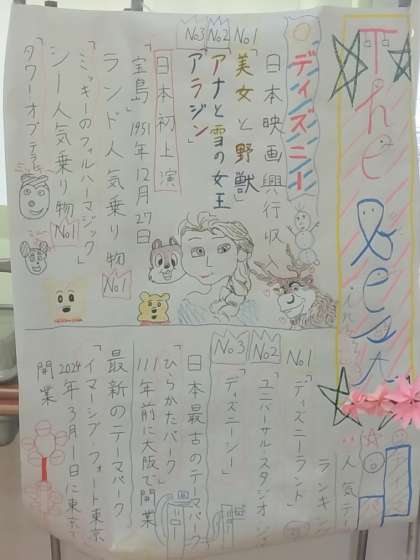 The Best
ディズニー
日本映画興行収入
No1「美女と野獣」
No2「アナと雪の女王」
No3「アラジン」
日本初上演
「宝島」1951年12月27日
ランド人気乗り物No1
「ミッキーのフィルハーマジック」
シー人気乗り物No1
「タワーオブテラー
人気テー
ランキン
No1「ディズニーランド」
No2「ユニバーサル・スタジオ・ジャ
No3「ディズニーシー」
日本最古のテーマパーク
「ひらかたパーク」
111年前に大阪で開業
最新のテーマパーク
「イマーシブ・フォート東京
2024年3月1日に東京で
開業